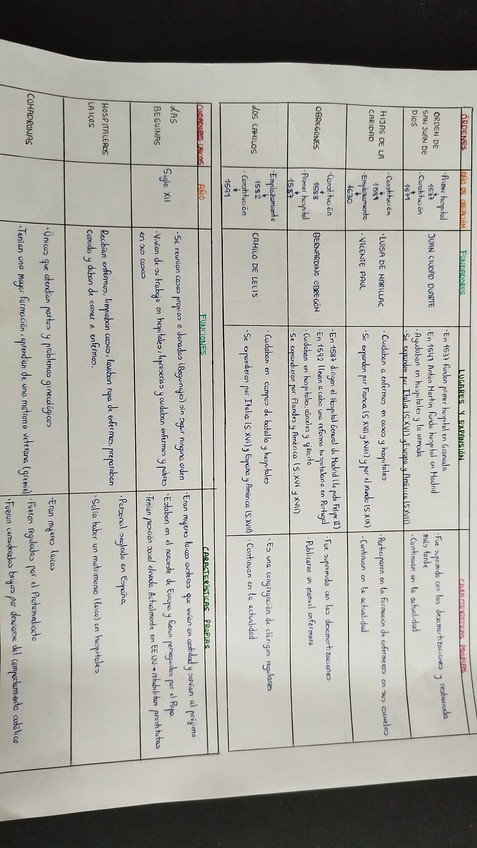 ÓRDENES
AÑO DE CREACIÓN
FUNDADORES
LUGARES Y EXPANSIÓN
CARACTERÍSTICAS PROPIAS
ORDEN DE
SAN JUAN DE
DIOS
· Primer hospital
1537
· Constitución
1571
JUAN CIUDAD DUARTE
· En 1537 fundan primer hospital en Granada
En 1549 Antón Martín funda hospital en Madrid
· Ayudaban en hospitales y la armada
· Se expanden por Italia (S.XVI) y Europa y América (S.XVIII)
· Fue suprimida con las desamortizaciones y restaurada
más tarde
· Continuan en la actualidad
HIJAS DE LA
CARIDAD
· Constitución
· Emplazamiento
1630
· LUISA DE MARILLAC
· VICENTE PAUL
· Cuidaban a enfermos en casas y hospitales
· Se expanden por Francia (S.XVII y XVIII) y por el mundo (S.XIX)
· Participaron en la formación de enfermeras en sus escuelas
· Continuan en la actualidad
OBREGONES
· Constitución
1588
· Primer hospital
1587
BERNARDINO OBREGÓN
· En 1587 dirigen el Hospital General de Madrid (lo pide Felipe II)
En 1592 llevan a cabo una reforma hospitalaria en Portugal
· Cuidaban en hospitales, y ejército
· Se expandieron por Flandes y América (S.XVI y XVII)
· Fue suprimida con las desamortizaciones
· Publicaron un manual enfermero
LOS CAMILOS
· Emplazamiento
1582
· Constitución
1591
CAMILO DE LELIS
· Cuidaban en campos de batalla y hospitales
· Se expandieron por Italia (S.XVI) y España y América (S.XVII)
· Es una congregación de clérigos regulares
· Continuan en la actualidad
CUIDADORES LAICOS
AÑO
FUNCIONES
CARACTERÍSTICAS PROPIAS
LAS
BEGUINAS
Siglo XII
· Se reunían casas propias o donadas (Beguinajes) sin seguir ninguna orden
· Vivían de su trabajo en hospitales, leproserías y cuidaban enfermos y pobres
en sus casas
· Eran mujeres laicas solteras que vivían en castidad y servían al prójimo
· Estaban en el noroeste de Europa y fueron perseguidas por el Papa
· Tenían posición social elevada. Actualmente en EE.UU → rehabilitan prostitutas
HOSPITALEROS
LAICOS
Recibían enfermos, limpiaban casas, lavaban ropa de enfermos, preparaban
comida y daban de comer a enfermos.
· Personal seglado en España
· Solía haber un matrimonio (laico) en hospitales
COMADRONAS
· Únicas que atendían partos y problemas ginecológicos
· Tenían una mayor formación, aprendían de una matrona veterana (gremio)
· Eran mujeres laicas
· Fueron reguladas por el Protomedicato
· Fueron consideradas brujas por desviarse del comportamiento católico